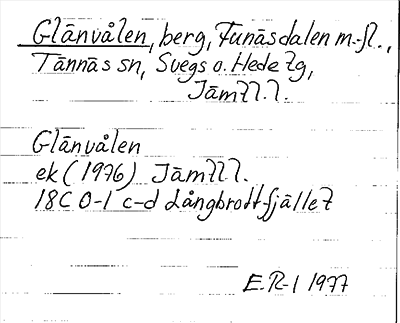 Glänvålen, berg, Funäsdalen m.fl.,
Tännäs sn, Svegs o. Hede tg,
Jämtl. l.
Glänvålen
ek (1976) Jämtl l.
18C 0-1 c-d Långbrottfjället
E.R-l 1977